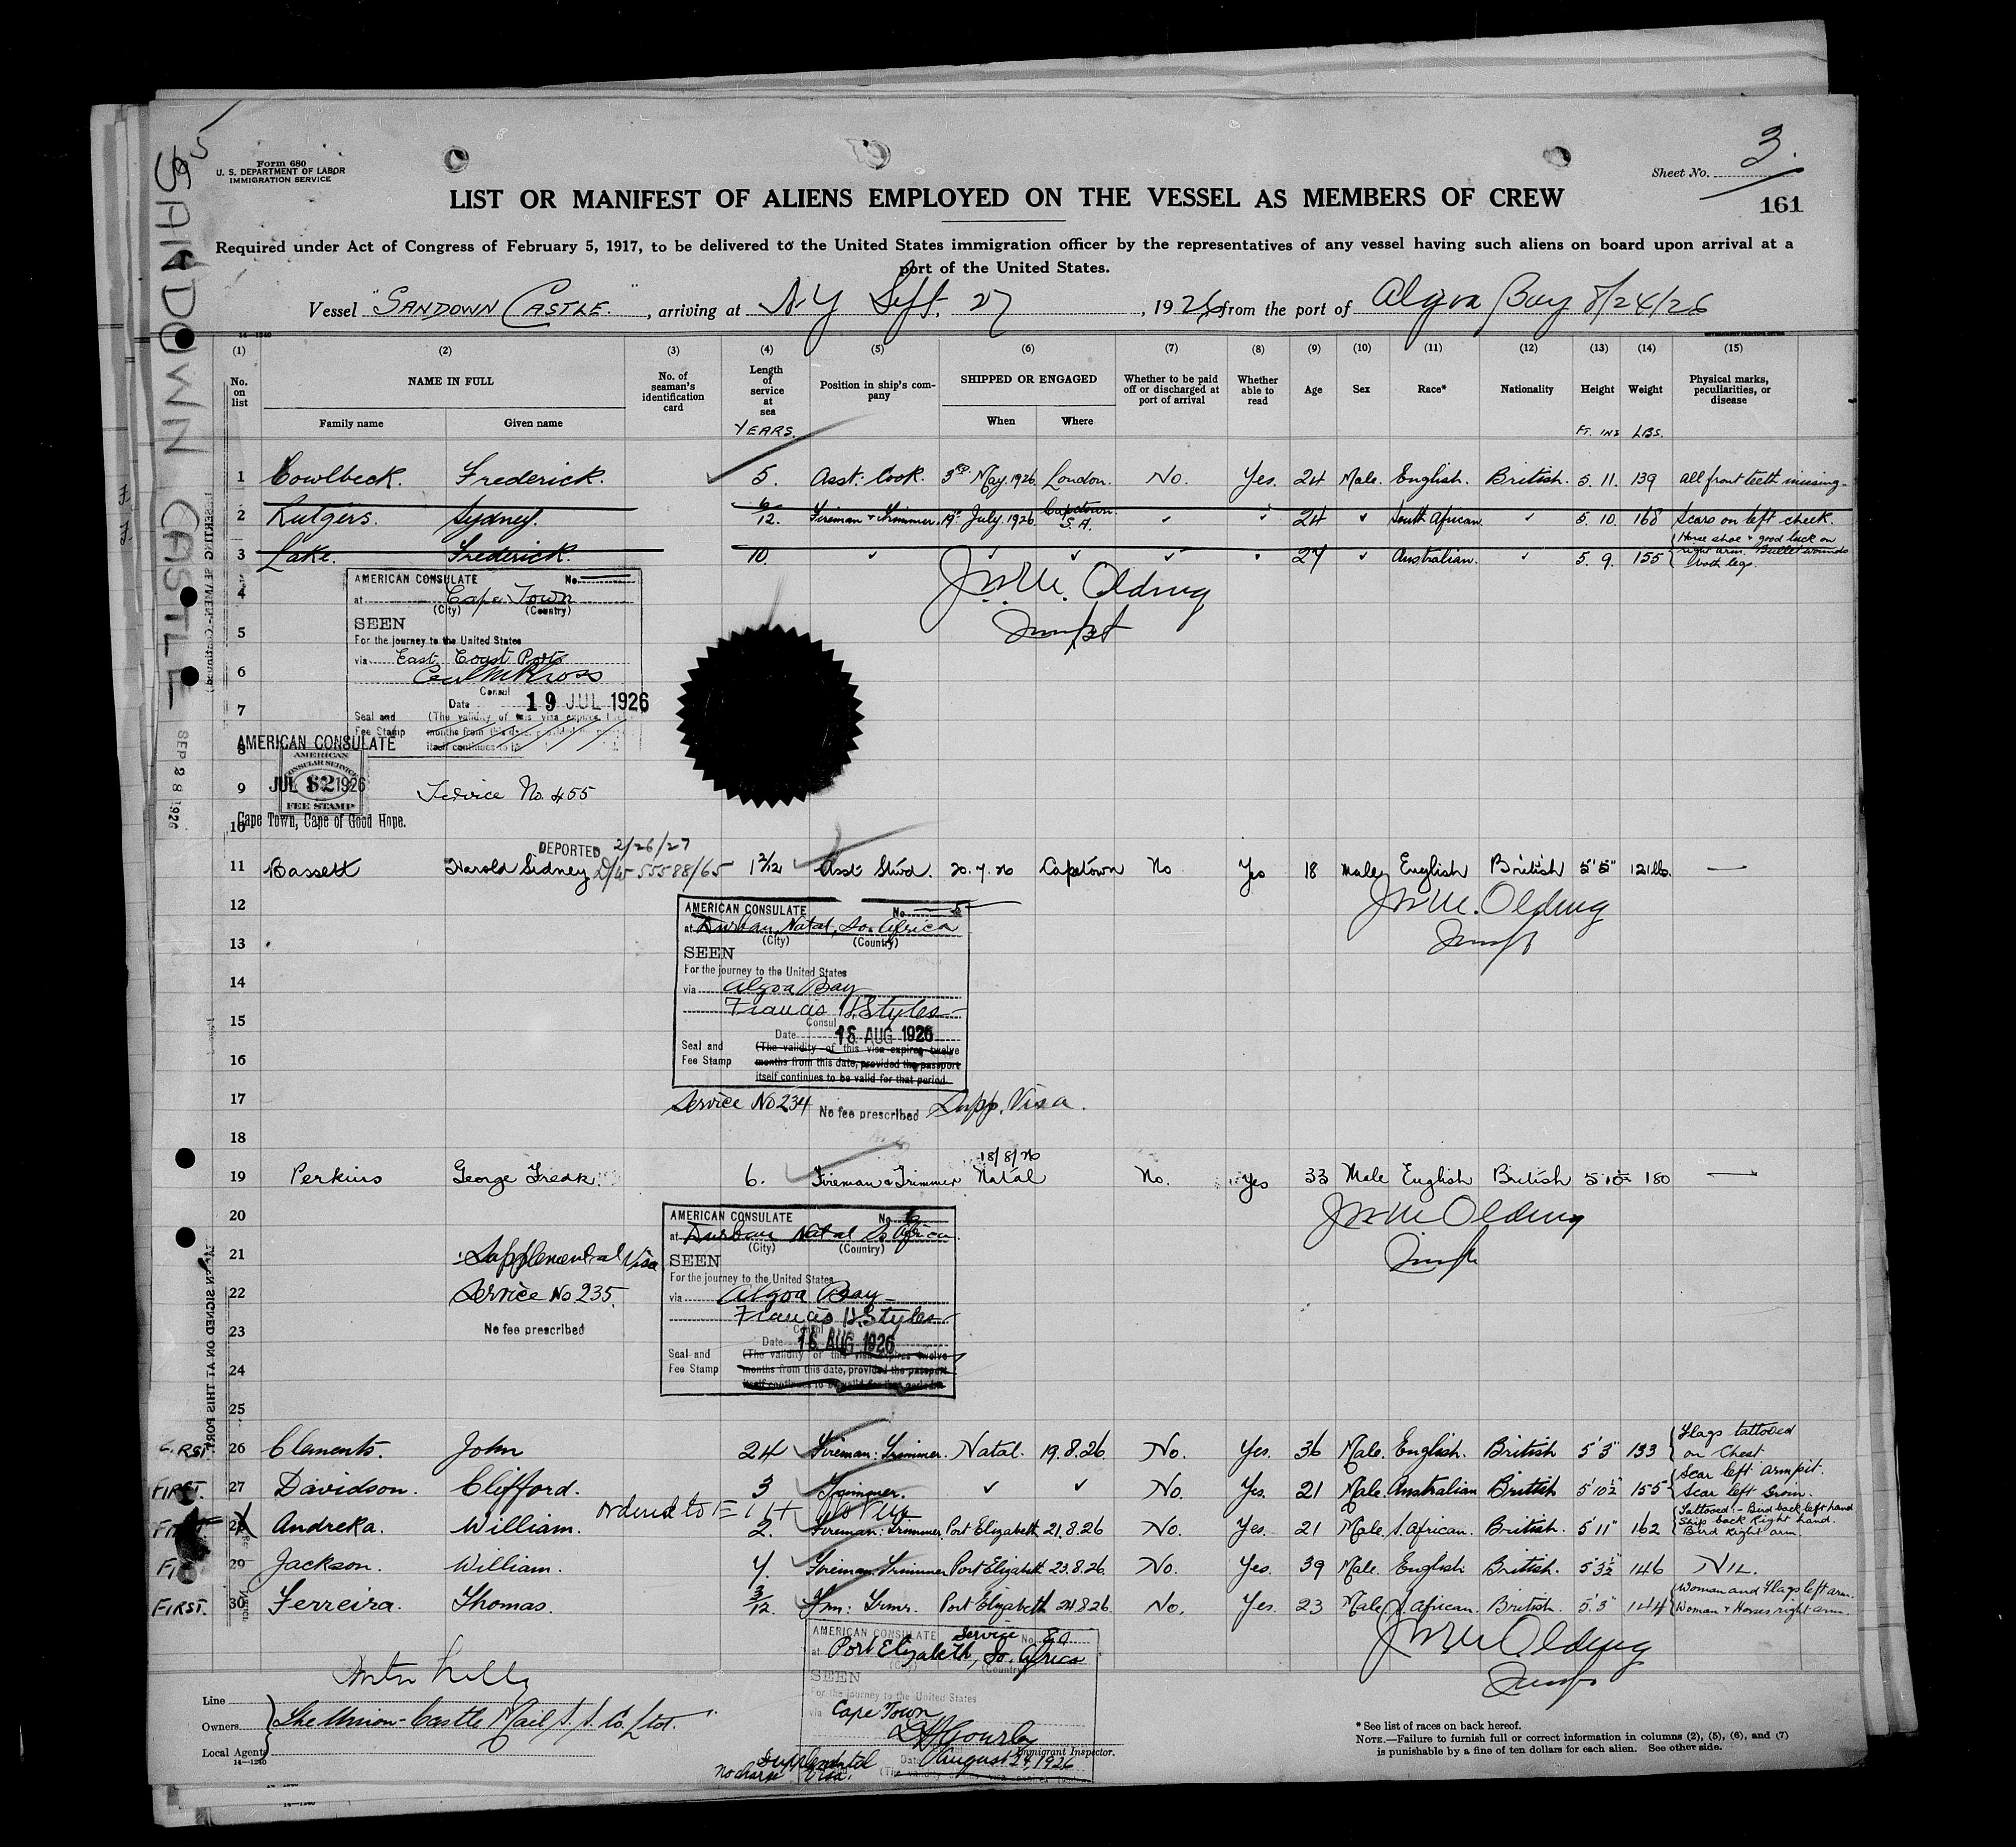 Form 680
U. S. DEPARTMENT OF LABOR
IMMIGRATION SERVICE
Sheet No. 3.
161
LIST OR MANIFEST OF ALIENS EMPLOYED ON THE VESSEL AS MEMBERS OF CREW
Required under Act of Congress of February 5, 1917, to be delivered to the United States immigration officer by the representatives of any vessel having such aliens on board upon arrival at a
port of the United States.
Vessel "SANDOWN CASTLE", arriving at N.Y Sept. 27, 1926 from the port of Algoa Bay 8/24/26
SANDOWN CASTLE
SEP 28 1926
14—1240
(1) (2) (3) (4) (5) (6) (7) (8) (9) (10) (11) (12) (13) (14) (15)
No. on list
NAME IN FULL
Family name
Given name
No. of seaman's identification card
Length of service at sea
YEARS.
Position in ship's company
SHIPPED OR ENGAGED
When
Where
Whether to be paid off or discharged at port of arrival
Whether able to read
Age
Sex
Race*
Nationality
Height
FT. INS
Weight
LBS.
Physical marks, peculiarities, or disease
1 Cowlbeck. Frederick. 5. Asst: Cook. 3rd May. 1926 London. No. Yes. 24 Male. English. British. 5. 11. 139 all front teeth missing
2 Rutgers. Sydney. 6/12. Fireman & Trimmer. 19th July. 1926 Capetown S.A. ✓ ✓ 24 ✓ South African. ✓ 5. 10. 168 Scars on left cheek.
3 Lake. Frederick. 10. ✓ ✓ ✓ ✓ ✓ 27 ✓ Australian. ✓ 5. 9. 155 Horse shoe & good luck on right arm. Bullet wounds both legs.
4
AMERICAN CONSULATE No.
at Cape Town
(City) (Country)
J.W.M. Olding
5
SEEN
For the journey to the United States
6
via East Coast Ports
Consul
7
Date 19 JUL 1926
Seal and Fee Stamp
(The validity of this visa expires
months from this date, provided
itself continues to be
8
AMERICAN CONSULATE
AMERICAN
CONSULAR SERVICE
9
JUL 1926
FEE STAMP
Service No. 455
10
Cape Town, Cape of Good Hope.
DEPORTED 2/26/27
11 Bassett Harold Sidney 55588/65 1 2/12 Asst Stwd. 20.7.26 Capetown No Yes 18 Male English British 5'5" 121 lb. —
12
AMERICAN CONSULATE No. 5
at Durban, Natal, So. Africa
(City) (Country)
J.W.M. Olding
13
SEEN
For the journey to the United States
14
via Algoa Bay
Francis H. Styles
15
Consul
Date 18 AUG 1926
16
Seal and Fee Stamp
(The validity of this visa expires twelve
months from this date, provided the passport
itself continues to be valid for that period.
17
Service No 234 No fee prescribed Supp. Visa.
18
19 Perkins George Fredk. 6. Fireman & Trimmer 18/8/26 Natal No. Yes 33 Male English British 5'10½ 180 —
20
AMERICAN CONSULATE No. 6
at Durban Natal So Africa.
(City) (Country)
J.W.M Olding
21
Supplemental Visa
SEEN
For the journey to the United States
22
Service No. 235.
via Algoa Bay
Francis H. Styles
23
No fee prescribed
Consul
Date 18 AUG 1926
24
Seal and Fee Stamp
(The validity of this visa expires twelve
months from this date, provided the passport
itself continues to be valid for that period.
25
26 Clements. John 24 Fireman: Trimmer. Natal. 19.8.26. No. Yes. 36 Male. English. British 5'3" 133 Flags tattooed on Chest
FIRST. 27 Davidson. Clifford. 3 Trimmer. ✓ ✓ No. Yes. 21 Male. Australian British 5'10½" 155 Scar left armpit. Scar left Groin.
FIRST 28 Andreka. William. 2. Fireman: Trimmer. Port Elizabeth 21.8.26 No. Yes. 21 Male. S. African. British. 5'11" 162 Tattooed:- Bird back left hand Ship back Right hand. Bird Right arm.
29 Jackson. William. 7. Fireman. Trimmer Port Elizabeth 23.8.26. No. Yes. 39 Male. English British. 5'3½" 146 NIL.
FIRST. 30 Ferreira. Thomas. 3/12. Fmn: Trmr. Port Elizabeth 24.8.26 No. Yes. 23 Male S. African. British. 5'3" 144 Woman and Flags left arm. Woman & Horses right arm.
AMERICAN CONSULATE Service No. 80
at Port Elizabeth, So. Africa
(Country)
J.W.M. Olding
SEEN
For the journey to the United States
via Cape Town
Date August 24, 1926
Immigrant Inspector.
Supplemental Visa.
No charge
Line
Owners The Union-Castle Mail S. S. Co. Ltd.
Local Agents
14—1240
* See list of races on back hereof.
NOTE.—Failure to furnish full or correct information in columns (2), (5), (6), and (7)
is punishable by a fine of ten dollars for each alien. See other side.